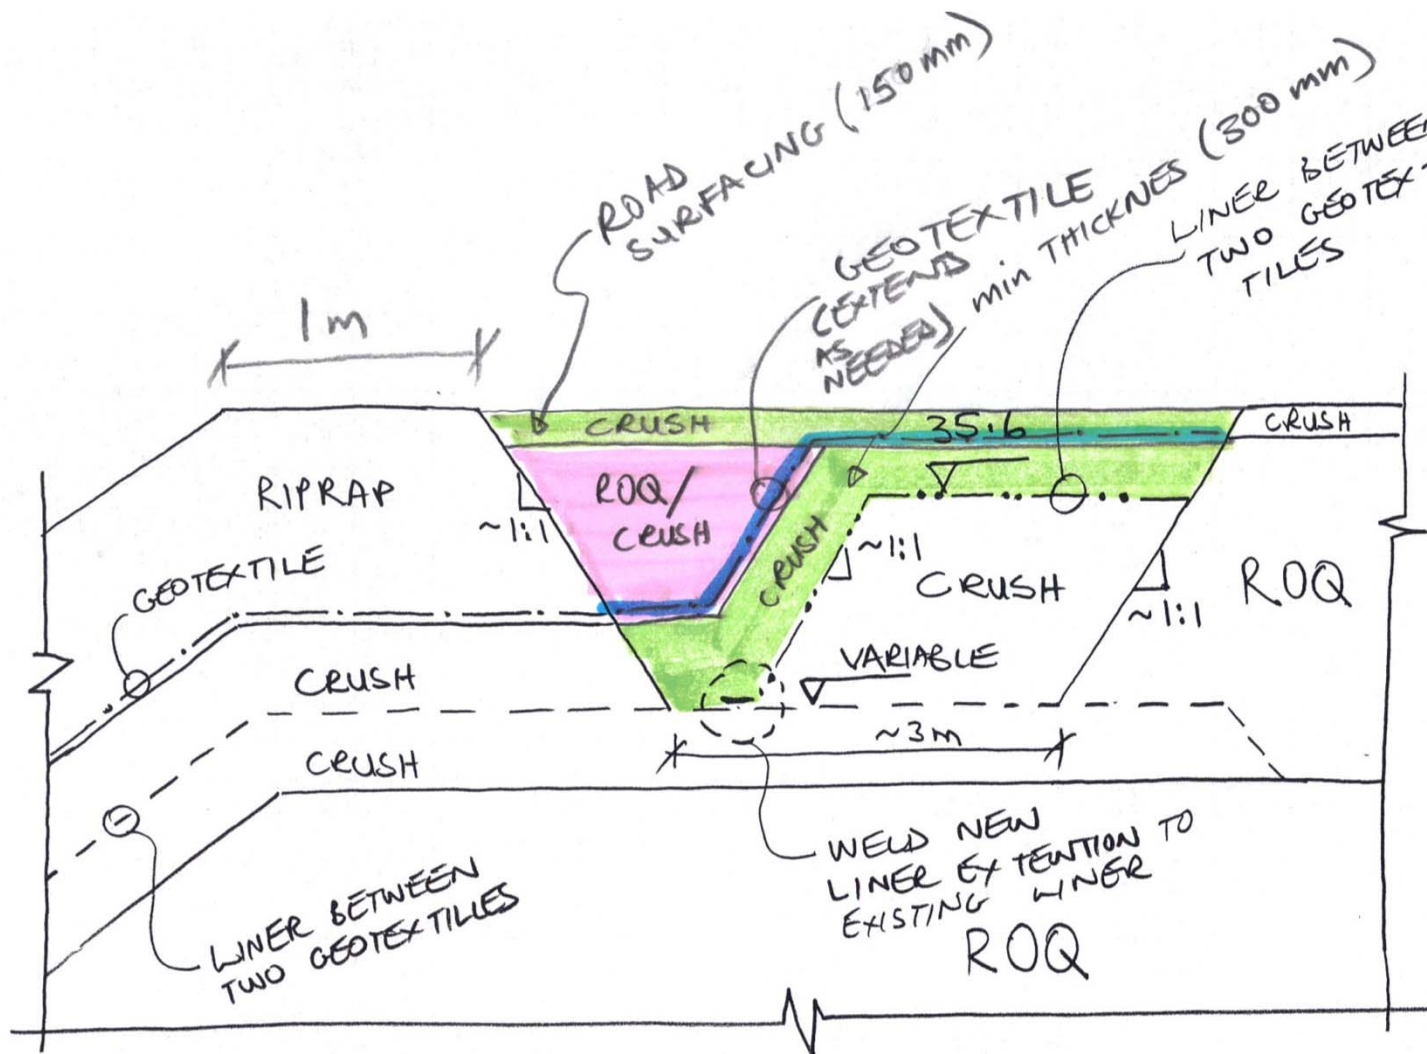 ROAD
SURFACING (150mm)
GEOTEXTILE
(EXTEND
AS
NEEDED)
min THICKNES (300 mm)
LINER BETWEE
TWO GEOTEX-
TILES
1m
CRUSH
35.6
CRUSH
RIPRAP
ROQ/
CRUSH
~1:1
CRUSH
~1:1
CRUSH
~1:1
ROQ
GEOTEXTILE
CRUSH
VARIABLE
CRUSH
~3m
WELD NEW
LINER EXTENTION TO
EXISTING LINER
LINER BETWEEN
TWO GEOTEXTILLES
ROQ